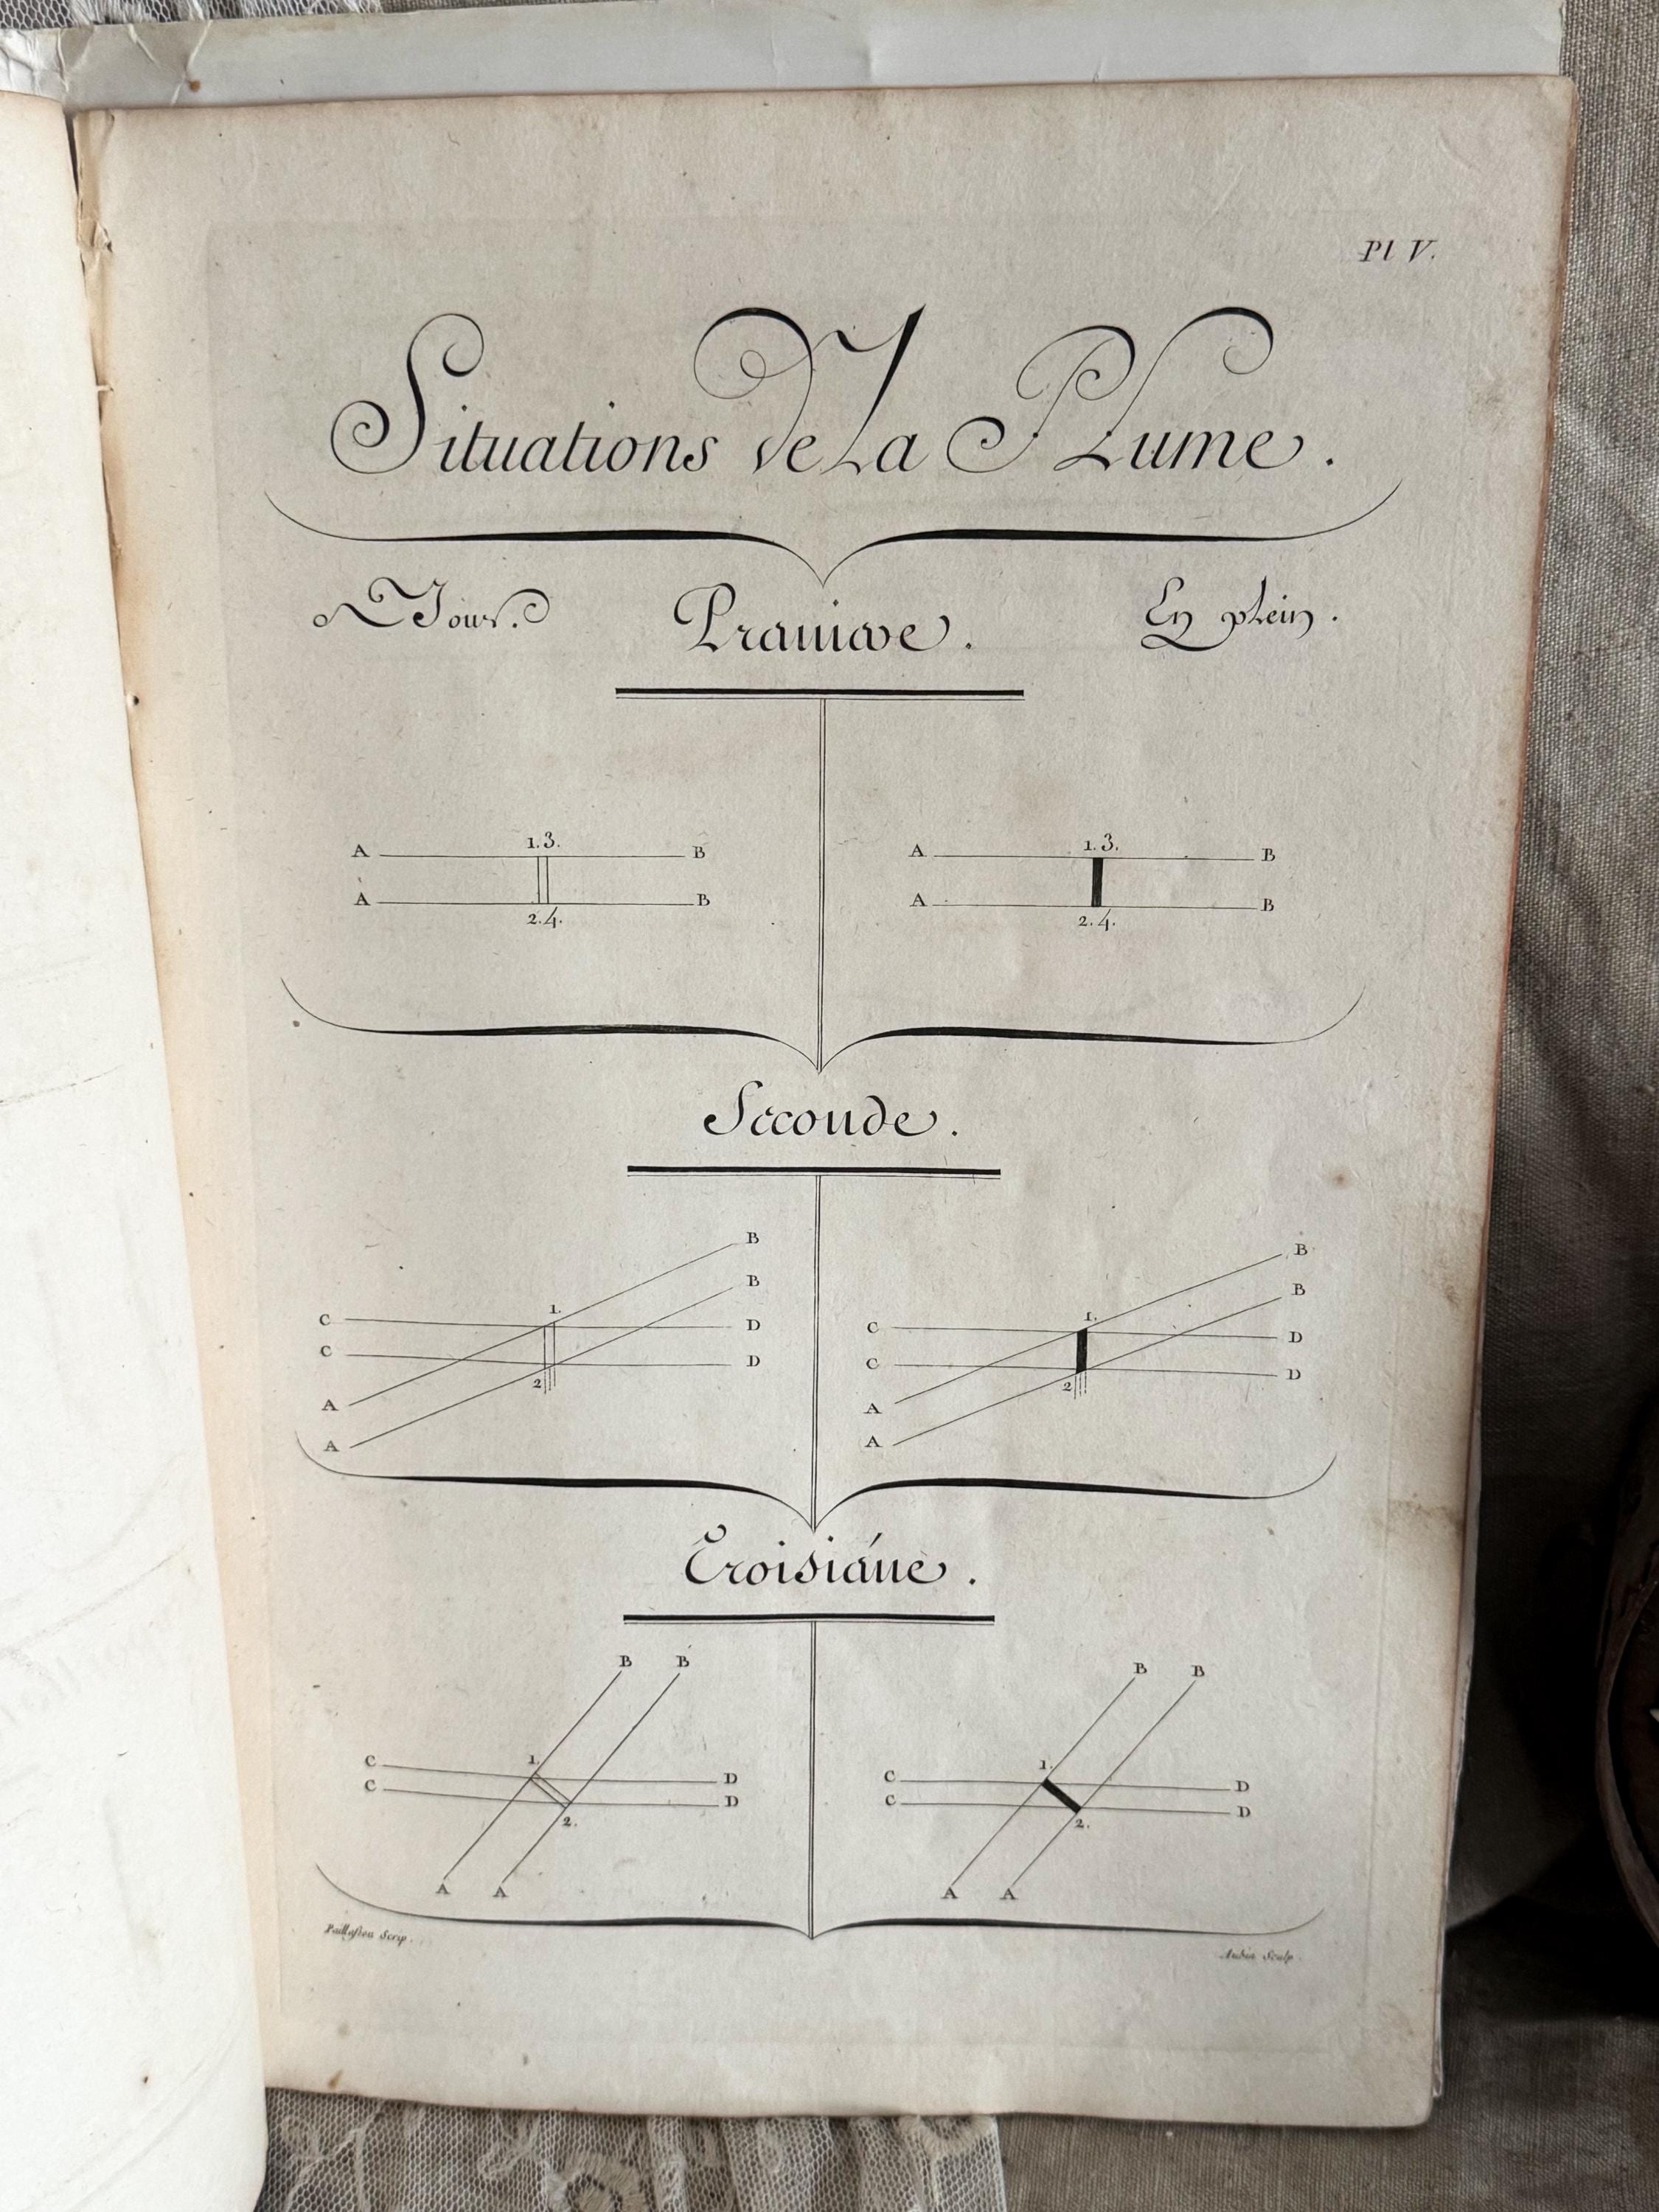 Pl V.
Situations de La Plume.
A Jour. Premiere. En plein.
1. 3. 1. 3.
A B A B
A B A B
2. 4. 2. 4.
Seconde.
B B
B B
1. 1.
C D C D
C D C D
2 2
A A
A A
Troisiéme.
B B B B
1. 1.
C D C D
C D C D
2. 2.
A A A A
Paillasson Scrip. Aubin Sculp